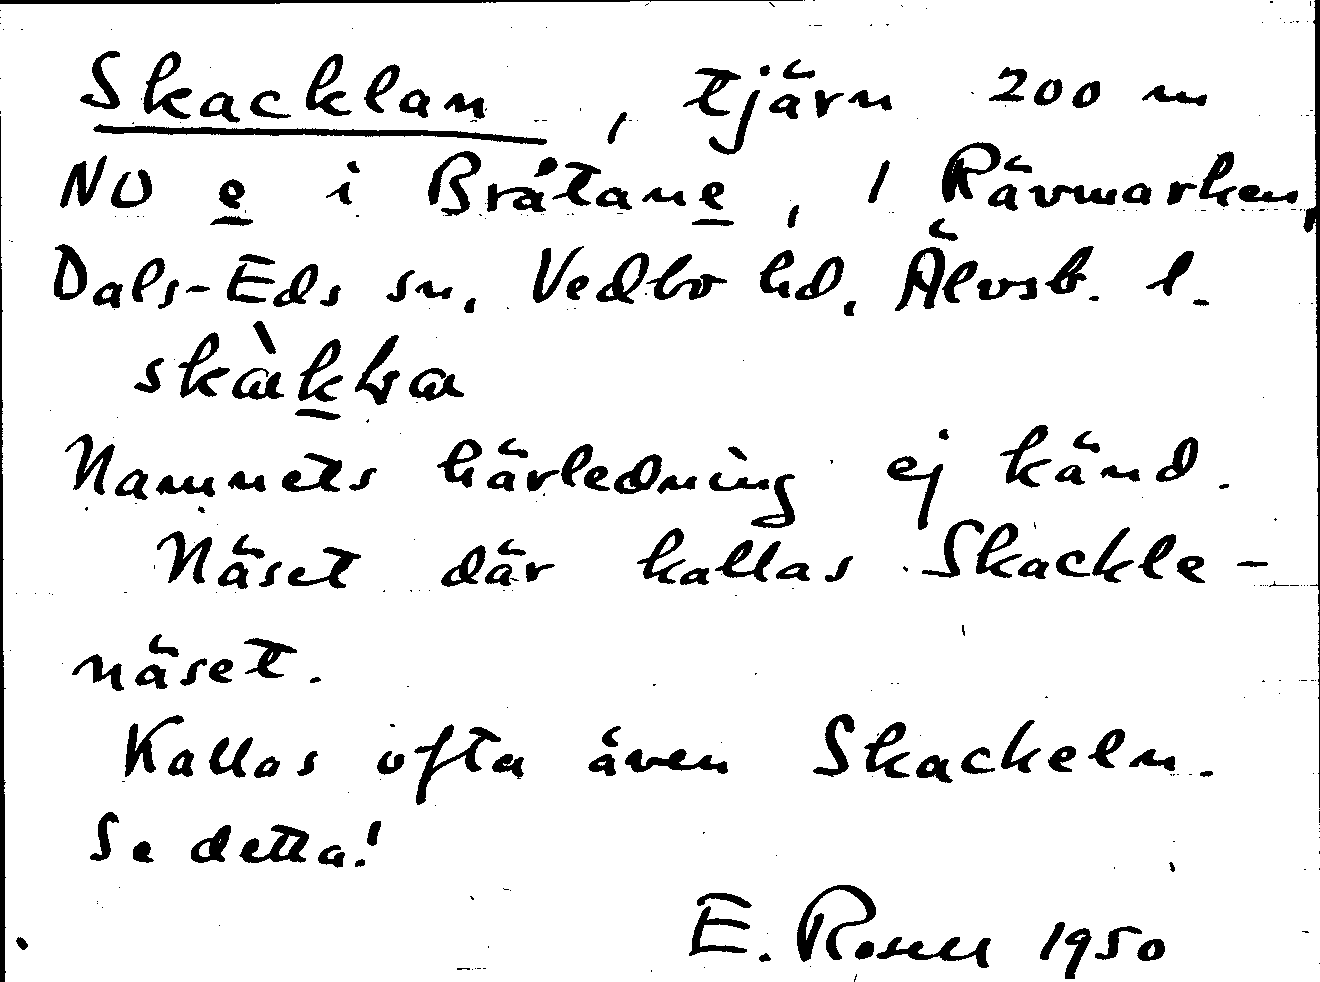 Skacklan, tjärn 200 m
NO e i Bråtane, i Rävmarken,
Dals-Eds sn, Vedbo hd, Älvsb. l.
Namnets härledning ej känd.
Näset där kallas Skackle-
näset.
Kallas ofta även Skackeln.
Se detta!
E. Rosell 1950